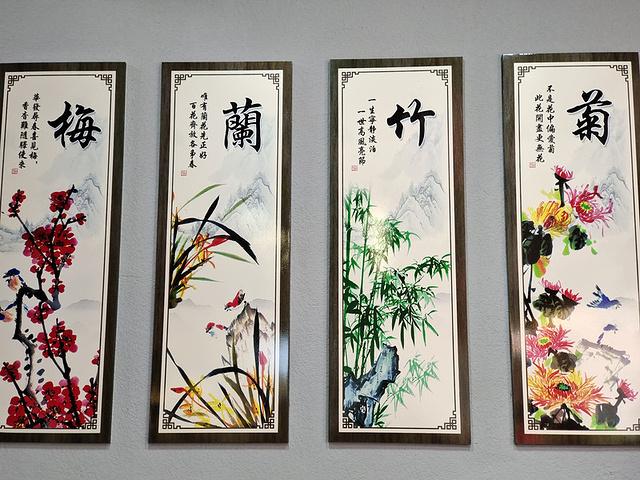 梅
華發尋春喜見梅,
香香難隨驛使來
蘭
唯有蘭花先正好
百花齊放各爭春
竹
一生寧靜淡泊
一世高風亮節
菊
不是花中偏愛菊
此花開盡更無花